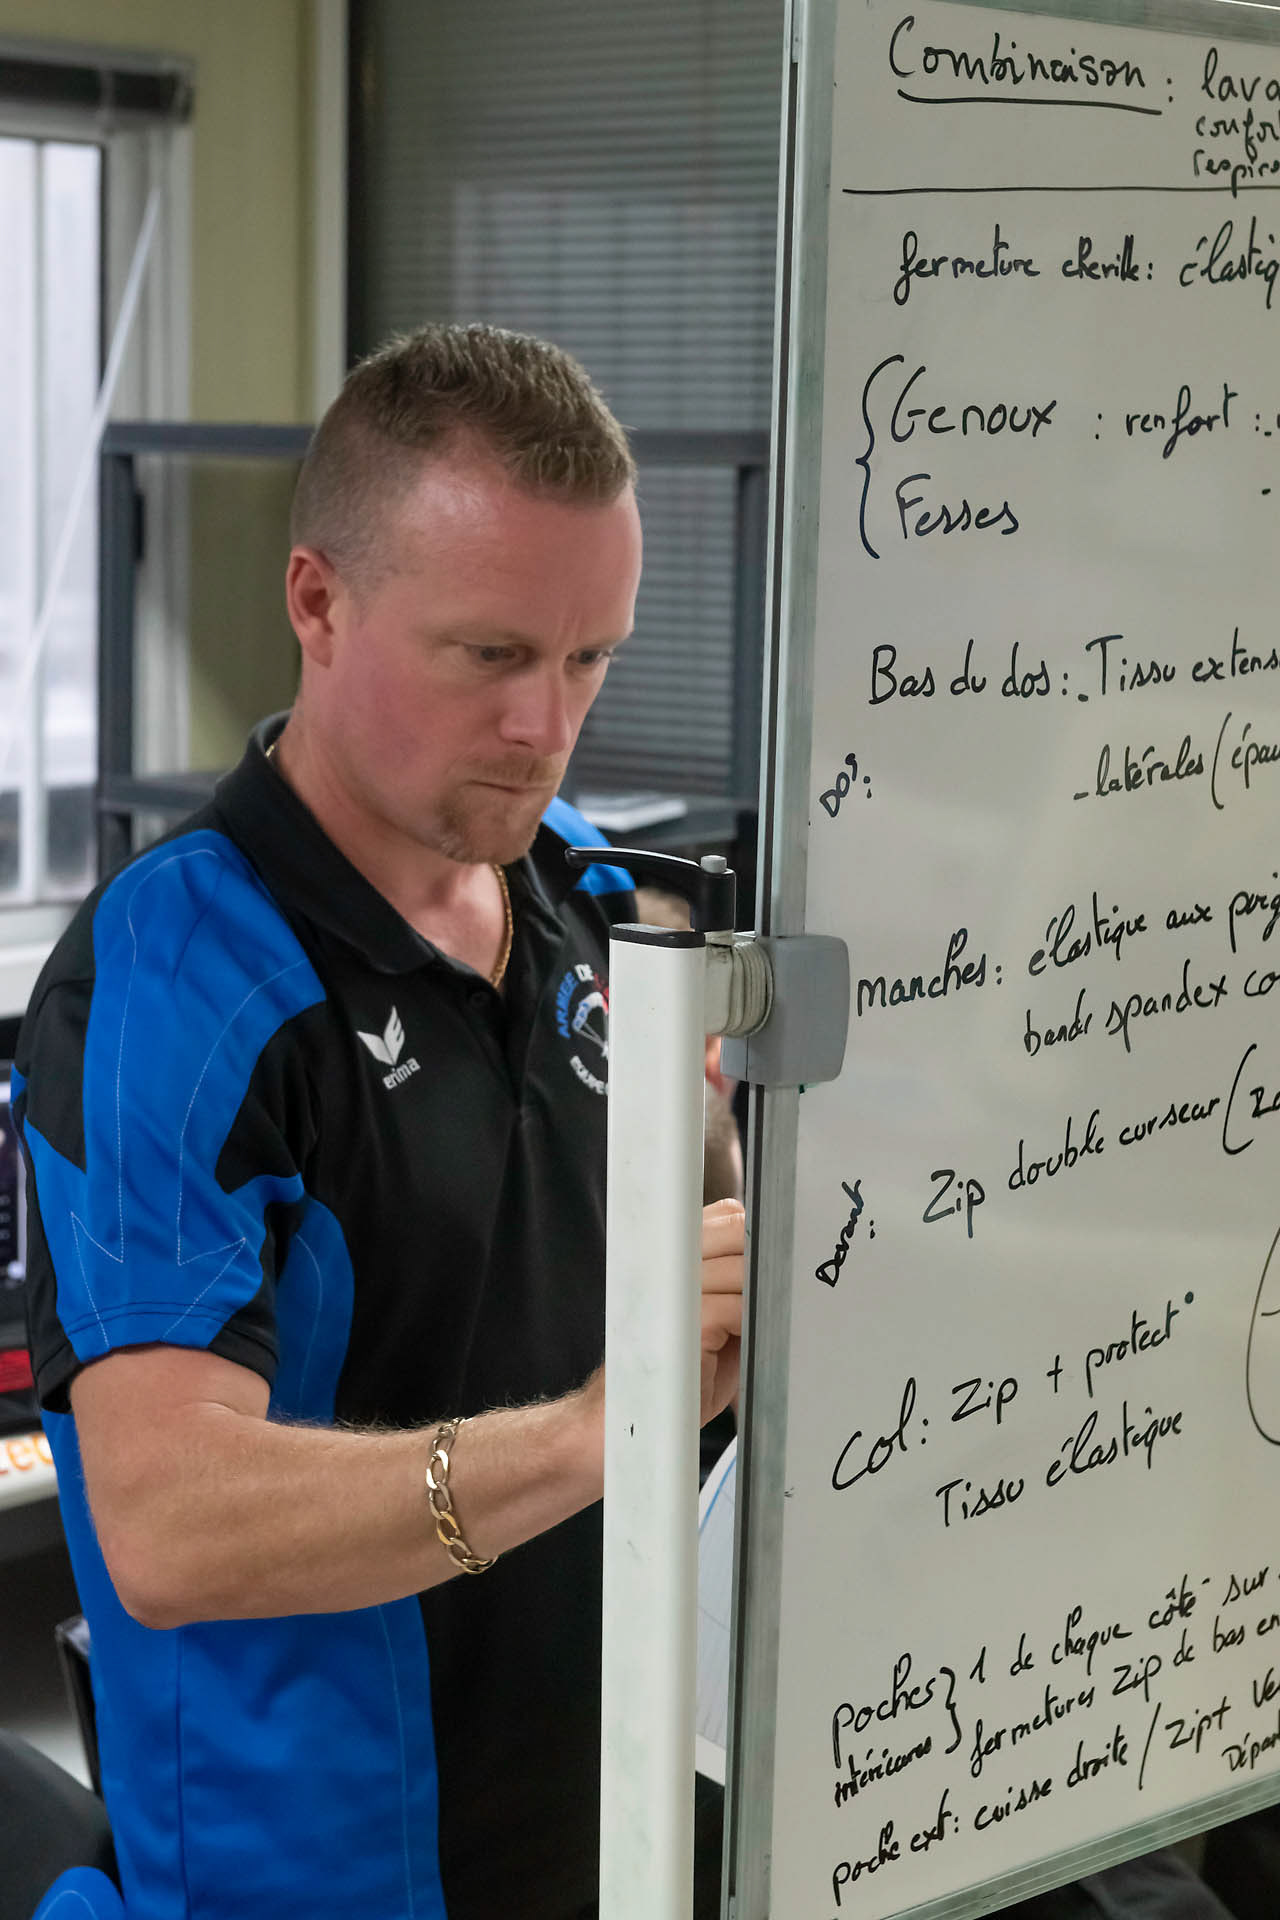 Combinaison : lava
confor
respira
fermeture cheville : élastiq
Genoux : renfort :
Fesses
Bas du dos : - Tissu extens
Dos :
- latérales (épau
manches : élastique aux poig
bande spandex co
Devant :
Zip double curseur (
Col : Zip + protect°
Tissu élastique
poches 1 de chaque côté sur
intérieures fermetures zip de bas en
poche ext : cuisse droite / zip +
erima
ARMEE DE